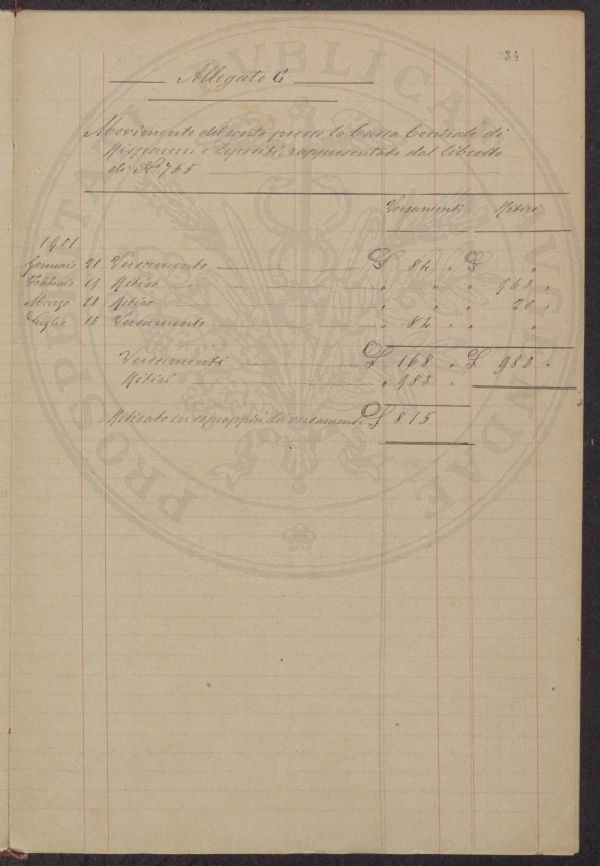 34
Allegato G
Movimento del conto presso la Cassa Centrale di
Risparmi e Depositi, rappresentato dal libretto
di N. 765
Versamenti Ritiri
1901
Gennaio 21 Versamento £ 84 " £ "
Febbraio 19 Ritiro " " " 963 "
Marzo 11 Ritiro " " " 20 "
Luglio 15 Versamento " 84 " " "
Versamenti £ 168 " £ 983 "
Ritiri " 983 "
Ritirato in soprappiù dei versamenti £ 815
PROSPERITATI PUBLICAE AUGENDAE